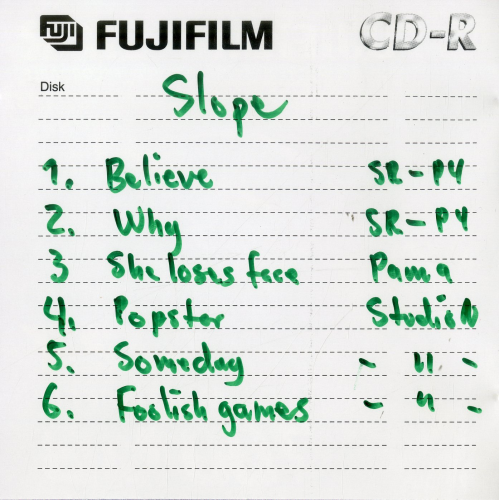 FUJI FUJIFILM CD-R
Disk Slope
1. Believe SR-P4
2. Why SR-P4
3 She loses face Pama
4. Popstar StudioN
5. Someday - 11 -
6. Foolish games - 11 -